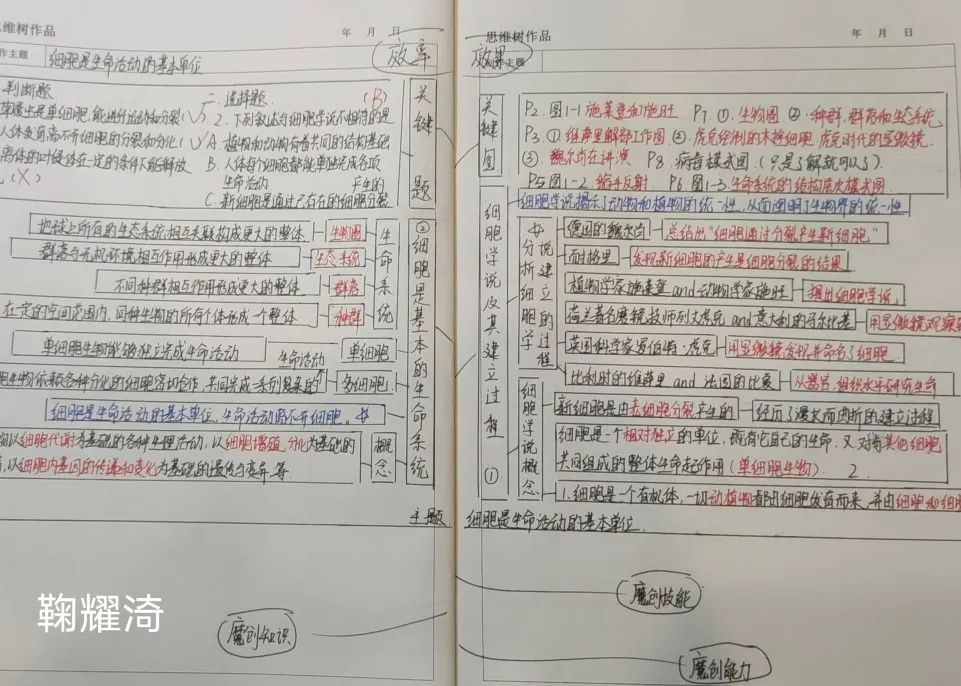 思维树作品 年 月 日
作主题 细胞是生命活动的基本单位 效率
判断题
草履虫是单细胞,能进行运动和分裂 √
人体发育离不开细胞的分裂和分化 √
离体的叶绿体在一定的条件下能释放
(×)
二、选择题 (B)
2. 下列叙述与细胞学说不相符的是
A. 植物和动物有着共同的结构基础
B. 人体每个细胞都能单独完成各项
生命活动 产生的
C. 新细胞是通过已存在的细胞分裂
关键题
地球上所有的生态系统相互关联构成更大的整体 生物圈
群落与无机环境相互作用形成更大的整体 生态系统
不同种群相互作用形成更大的整体 群落
在一定的空间范围内,同种生物的所有个体形成一个整体 种群
生命系统
单细胞生物能够独立完成生命活动 生命活动 单细胞
胞生物依赖各种分化的细胞密切合作,共同完成一系列复杂的 多细胞
细胞是生命活动的基本单位,生命活动离不开细胞。
物以细胞代谢为基础的各种生理活动,以细胞增殖,分化为基础的
,以细胞内基因的传递和变化为基础的遗传与变异等.
概念
②细胞是基本的生命系统
主题
魔创知识
鞠耀渏
思维树作品 年 月 日
效果 主题
关键图
P2. 图1-1 施莱登和施旺 P7. ①. 生物圈 ②. 种群,群落和生态系统
P3. ①维萨里解剖工作图 ②. 虎克绘制的木栓细胞,虎克时代的显微镜
③. 魏尔肖在讲演 P8. 病毒模式图.(只是了解就可以了)
P5 图1-2. 缩手反射. P6. 图1-3. 生命系统的结构层次模式图.
细胞学说揭示了动物和植物的统一性,从而阐明了生物界的统一性
细胞学说及其建立过程 ①
分析细胞学说建立的过程
德国的魏尔肖 总结出“细胞通过分裂产生新细胞”
耐格里 发现新细胞的产生是细胞分裂的结果
植物学家施莱登 and 动物学家施旺 提出细胞学说,
荷兰著名磨镜技师列文虎克 and 意大利的马尔比基 用显微镜观察
英国科学家罗伯特·虎克 用显微镜发现并命名了细胞.
比利时的维萨里 and 法国的比夏 从器官,组织水平研究生命
细胞学说概念
新细胞是由老细胞分裂产生的 经历了漫长而曲折的建立过程
细胞是一个相对独立的单位,既有它自己的生命,又对与其他细胞
共同组成的整体生命起作用(单细胞生物). 2
1. 细胞是一个有机体,一切动植物都由细胞发育而来,并由细胞和细胞
细胞是生命活动的基本单位
魔创技能
魔创能力